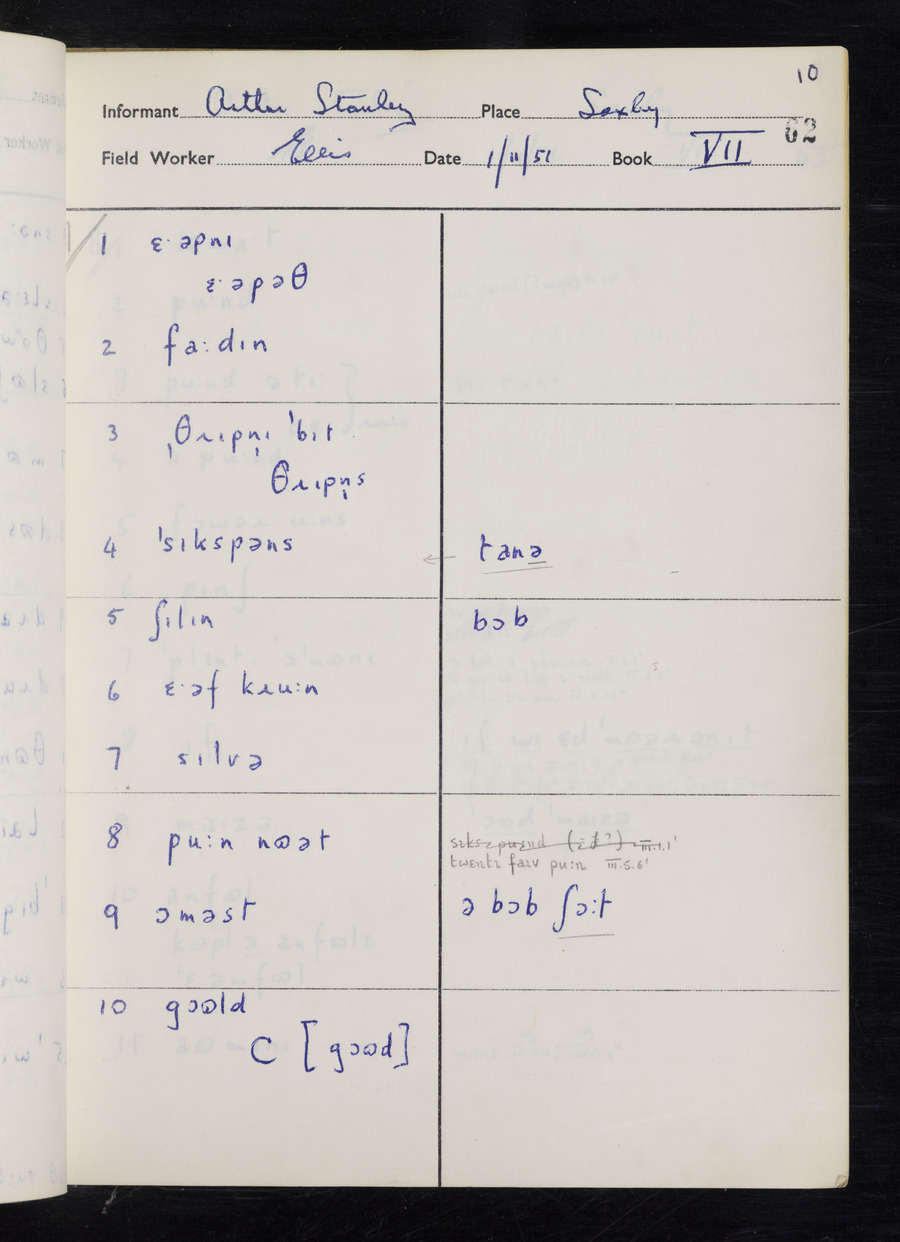 10
Informant Arthur Stanley Place Saxby
62
Field Worker Ellis Date 1/11/51 Book VII
1 ɛ·əpnɪ
ɛ·əpəθ
2 fa:dɪn
3 ˌθɹɪpn̩ɪ ˈbɪt
θɹɪpn̩s
4 ˈsɪkspəns ← tanə
5 ʃɪlɪn bɔb
6 ɛ·əf kɹuːn
7 sɪlvə
8 puːn nɷət
twentɪ faɪv puːn III.5.6'
9 ɔməst ə bɔb ʃɔːt
10 gɔɷld
C [gɔɷd]